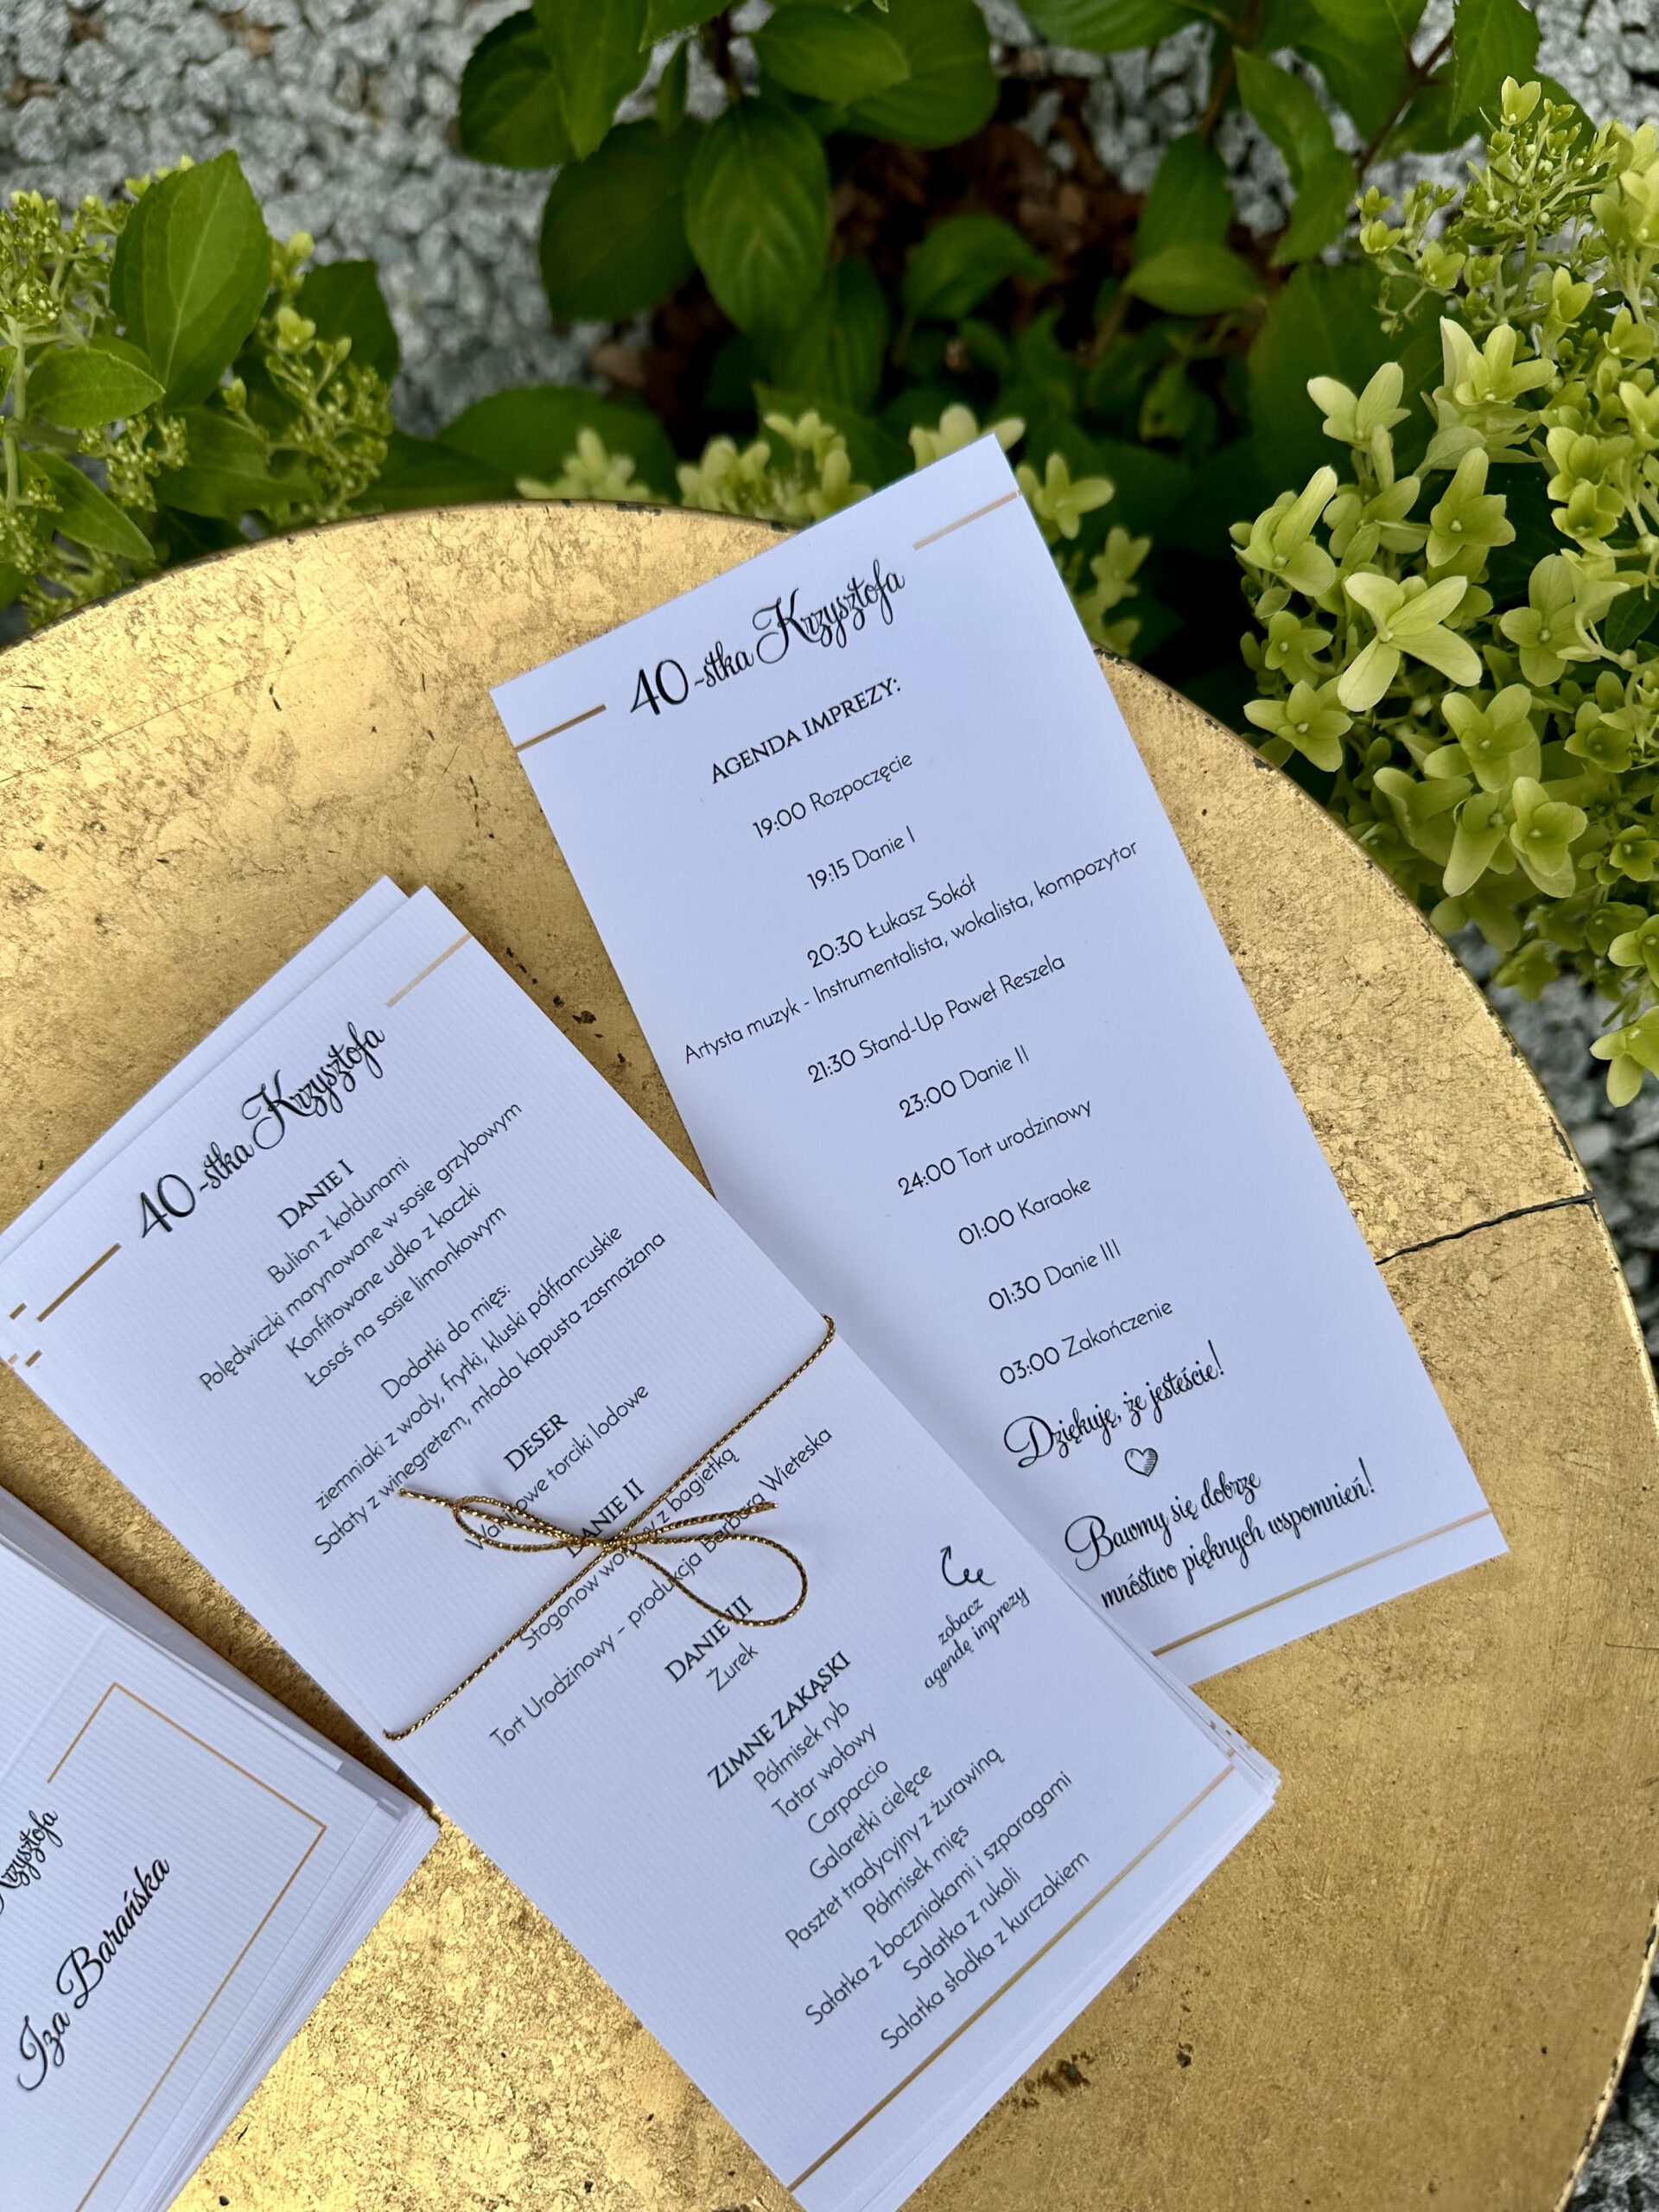 40-stka Krzysztofa
AGENDA IMPREZY:
19:00 Rozpoczęcie
19:15 Danie I
20:30 Łukasz Sokół
Artysta muzyk - Instrumentalista, wokalista, kompozytor
21:30 Stand-Up Paweł Reszela
23:00 Danie II
24:00 Tort urodzinowy
01:00 Karaoke
01:30 Danie III
03:00 Zakończenie
Dziękuję, że jesteście!
Bawmy się dobrze
mnóstwo pięknych wspomnień!
40-stka Krzysztofa
DANIE I
Bulion z kołdunami
Polędwiczki marynowane w sosie grzybowym
Konfitowane udko z kaczki
Łosoś na sosie limonkowym
Dodatki do mięs:
ziemniaki z wody, frytki, kluski półfrancuskie
Sałaty z winegretem, młoda kapusta zasmażana
DESER
Waniliowe torciki lodowe
DANIE II
Stogonow wołowy z bagietką
Tort Urodzinowy - produkcja Barbara Wieteska
DANIE III
Żurek
ZIMNE ZAKĄSKI
Półmisek ryb
Tatar wołowy
Carpaccio
Galaretki cielęce
Pasztet tradycyjny z żurawiną
Półmisek mięs
Sałatka z boczniakami i szparagami
Sałatka z rukoli
Sałatka słodka z kurczakiem
zobacz
agendę imprezy
Krzysztofa
Iza Barańska